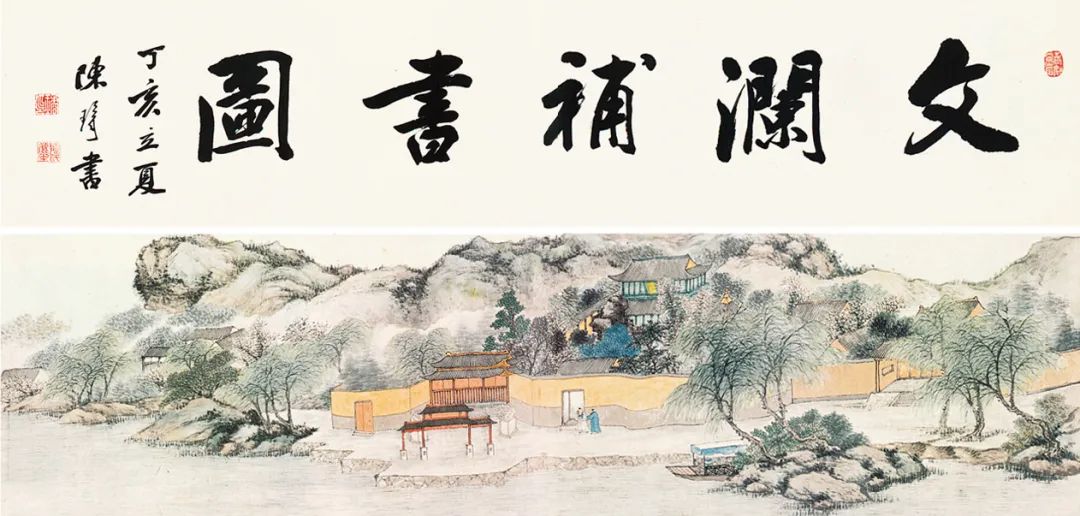 文瀾補書圖
丁亥立夏
陳琦書